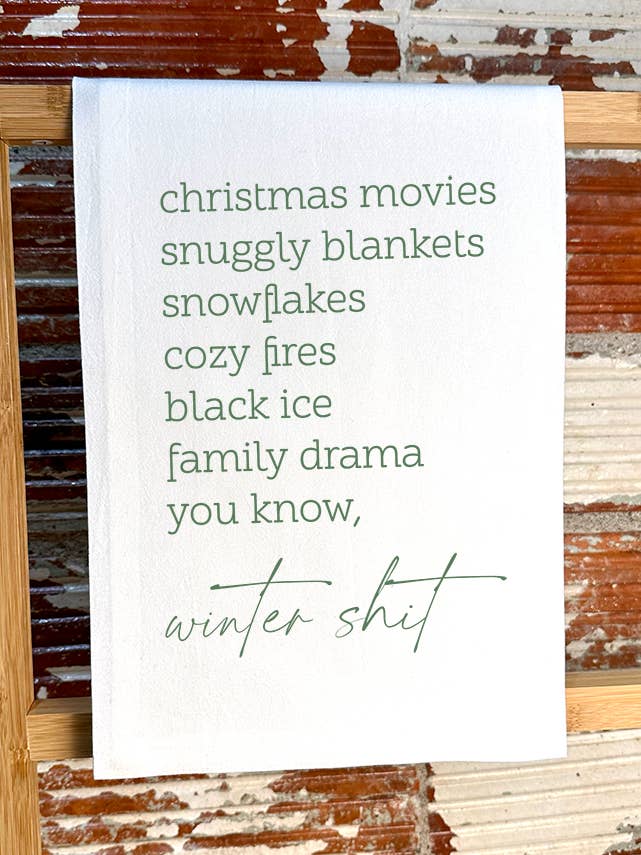 christmas movies
snuggly blankets
snowflakes
cozy fires
black ice
family drama
you know,
winter shit